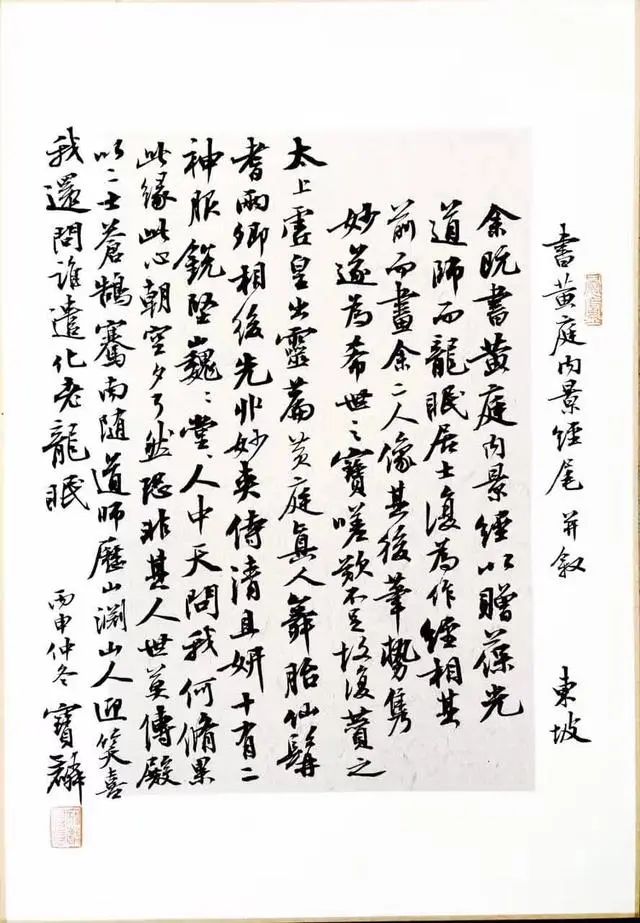 書黃庭內景經尾 并敘 東坡
余既書黃庭內景經以贈葆光
道師而龍眠居士復為作經相其
前而畫余二人像其後筆勢雋
妙遂為希世之寶嗟歎不足故復贊之
太上虛皇出靈篇黃庭真人舞胎仙髯
耆兩卿相後先丱妙夾侍清且妍十有二
神服銳堅巍〻堂〻人中天問我何脩果
此緣此心朝空夕了然恐非其人世莫傳殿
以二士蒼鵠騫南隨道師歷山淵山人迎笑喜
我還問誰遣化老龍眠 丙申仲冬 寶